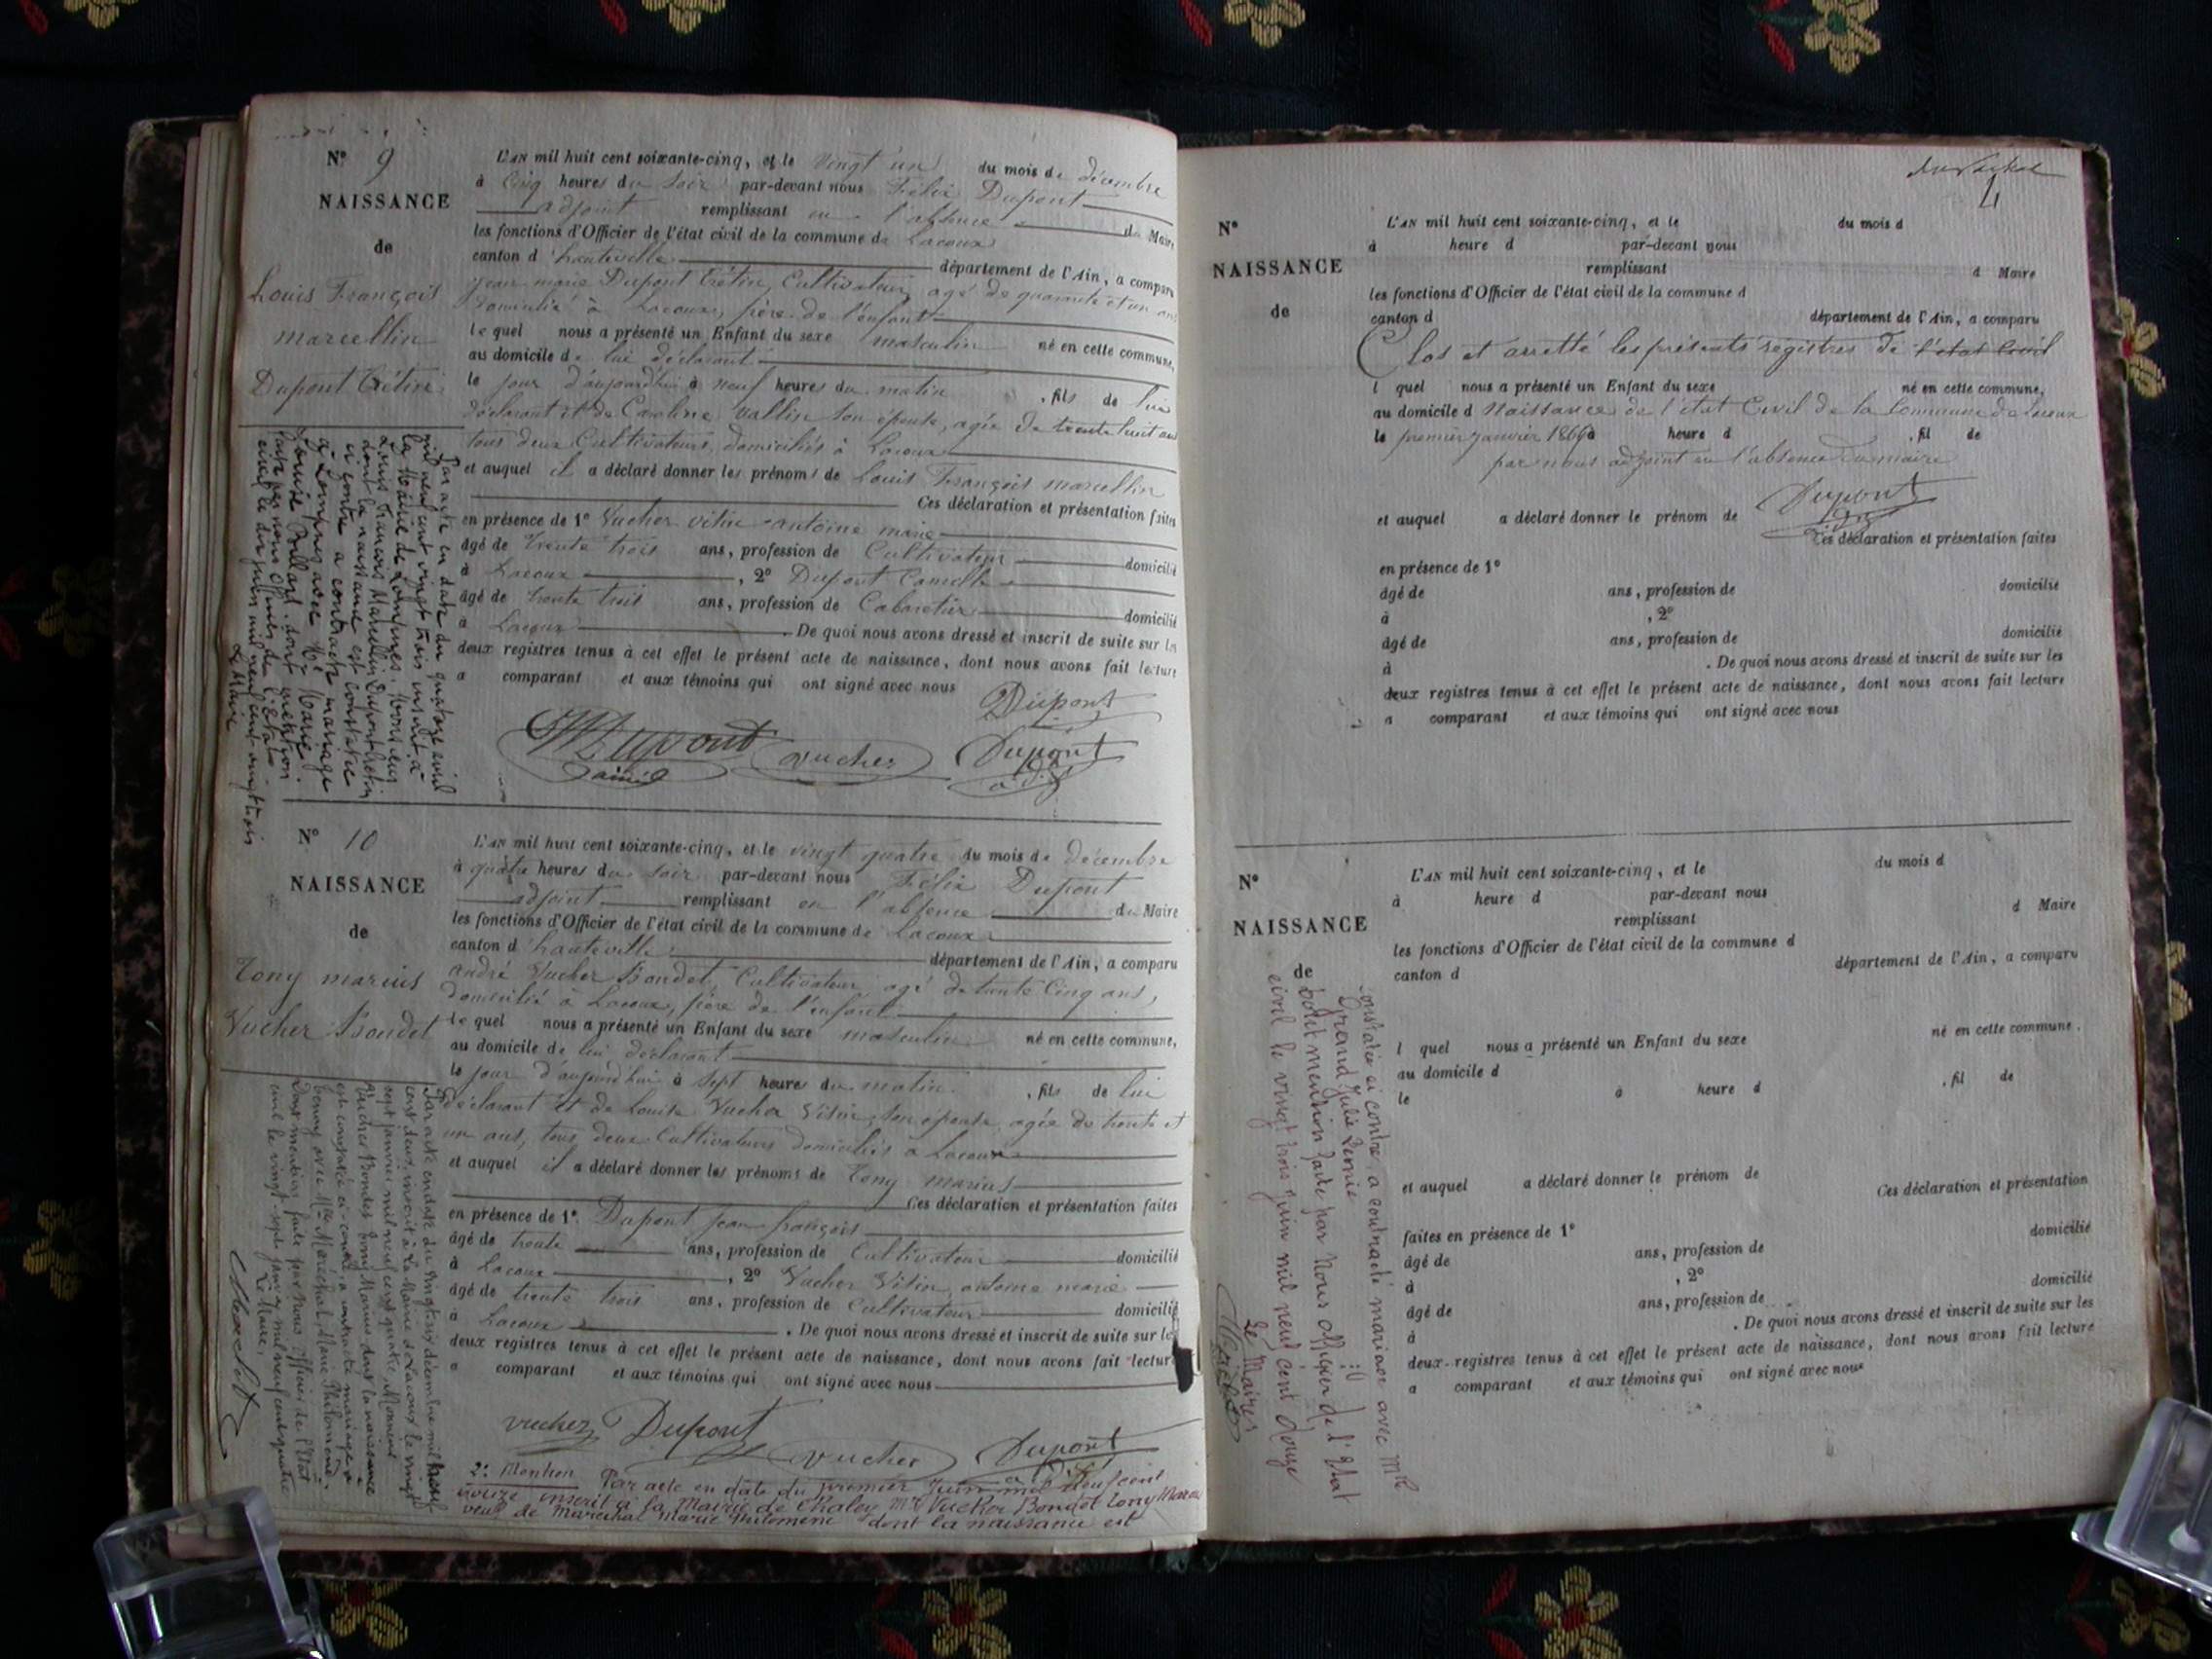 N° 9
NAISSANCE
de
Louis François
marcellin
Dupont Crétin
L'AN mil huit cent soixante-cinq, et le vingt un du mois de décembre
à cinq heures du soir par-devant nous Félix Dupont
adjoint remplissant en l'absence du Maire
les fonctions d'Officier de l'état civil de la commune de Lacoux
canton d'hauteville département de l'Ain, a comparu
jean marie Dupont Crétin, Cultivateur, agé de quarante et un ans
domicilié à Lacoux, père de l'enfant
lequel nous a présenté un Enfant du sexe masculin né en cette commune,
au domicile de lui déclarant
le jour d'aujourd'hui à neuf heures du matin, fils de lui
déclarant et de Caroline Vallin son épouse, agée de trente huit ans
tous deux Cultivateurs, domiciliés à Lacoux
et auquel il a déclaré donner les prénoms de Louis François marcellin
Ces déclaration et présentation faites
en présence de 1° Vucher vitin antoine marie
âgé de trente trois ans, profession de Cultivateur domicilié
à Lacoux, 2° Dupont Camille
âgé de trente trois ans, profession de Cabaretier domicilié
à Lacoux. De quoi nous avons dressé et inscrit de suite sur les
deux registres tenus à cet effet le présent acte de naissance, dont nous avons fait lecture
a comparant et aux témoins qui ont signé avec nous
Dupont
Dupont vucher Dupont
Par acte en date du quatorze avril
mil neuf cent vingt trois inscrit à
la Mairie de Lompnes, Monsieur
Louis François Marcellin Dupont Crétin
dont la naissance est constatée
ci contre a contracté mariage
à Lompnes avec Mme Marie
Louise Billard, dont mention
faite par nous Officier de l'état
civil le dix juin mil neuf cent vingt trois
Le Maire
N° 10
NAISSANCE
de
Tony marius
Vucher Bondet
L'AN mil huit cent soixante-cinq, et le vingt quatre du mois de décembre
à quatre heures du soir par-devant nous Félix Dupont
adjoint remplissant en l'absence du Maire
les fonctions d'Officier de l'état civil de la commune de Lacoux
canton d'hauteville département de l'Ain, a comparu
andré Vucher Bondet, Cultivateur, agé de trente cinq ans,
domicilié à Lacoux, père de l'enfant
lequel nous a présenté un Enfant du sexe masculin né en cette commune,
au domicile de lui déclarant
le jour d'aujourd'hui à sept heures du matin, fils de lui
déclarant et de Louise Vucher Vitin, son épouse, agée de trente et
un ans, tous deux Cultivateurs domiciliés à Lacoux
et auquel il a déclaré donner les prénoms de Tony marius
Ces déclaration et présentation faites
en présence de 1°. Dupont jean françois
âgé de trente ans, profession de Cultivateur domicilié
à Lacoux, 2° Vucher Vitin antoine marie
âgé de trente trois ans, profession de Cultivateur domicilié
à Lacoux. De quoi nous avons dressé et inscrit de suite sur les
deux registres tenus à cet effet le présent acte de naissance, dont nous avons fait lecture
a comparant et aux témoins qui ont signé avec nous
vucher Dupont vucher Dupont
Par acte en date du vingt six décembre mil neuf
cent deux, inscrit à la Mairie de Lacoux le vingt
sept janvier mil neuf cent quatre, Monsieur
Vucher Bondet Tony Marius dont la naissance
est constatée ci-contre a contracté mariage à
avec Mlle Maréchal Marie Philomène
Dont mention faite par Nous Officier de l'Etat
civil le vingt-sept janvier mil neuf cent quatre
Le Maire,
2e Mention Par acte en date du premier Juin mil neuf cent
douze inscrit à la Mairie de Chaley Mr Vucher Bondet Tony Marius
veuf de Maréchal Marie Philomène dont la naissance est
4
N°
NAISSANCE
de
L'AN mil huit cent soixante-cinq, et le du mois d
à heure d par-devant nous
remplissant d Maire
les fonctions d'Officier de l'état civil de la commune d
canton d département de l'Ain, a comparu
Clos et arretté les présents registres de l'état Civil
l quel nous a présenté un Enfant du sexe né en cette commune,
au domicile d Naissances de l'état Civil de la Commune de Lacoux
le premier janvier 1866 à heure d, fil de
par nous adjoint en l'absence du maire
Dupont
et auquel a déclaré donner le prénom de
Ces déclaration et présentation faites
en présence de 1°
âgé de ans, profession de domicilié
à , 2°
âgé de ans, profession de domicilié
à . De quoi nous avons dressé et inscrit de suite sur les
deux registres tenus à cet effet le présent acte de naissance, dont nous avons fait lecture
a comparant et aux témoins qui ont signé avec nous
N°
NAISSANCE
de
L'AN mil huit cent soixante-cinq, et le du mois d
à heure d par-devant nous
remplissant d Maire
les fonctions d'Officier de l'état civil de la commune d
canton d département de l'Ain, a comparu
l quel nous a présenté un Enfant du sexe né en cette commune.
au domicile d
le à heure d, fil de
et auquel a déclaré donner le prénom de
Ces déclaration et présentation
faites en présence de 1° domicilié
âgé de ans, profession de
à , 2° domicilié
âgé de ans, profession de
à . De quoi nous avons dressé et inscrit de suite sur les
deux registres tenus à cet effet le présent acte de naissance, dont nous avons fait lecture
a comparant et aux témoins qui ont signé avec nous
constatée ci contre, a contracté mariage avec Mlle
Grand Julie
Dont mention faite par Nous officier de l'Etat
civil le vingt trois juin mil neuf cent douze
Le Maire